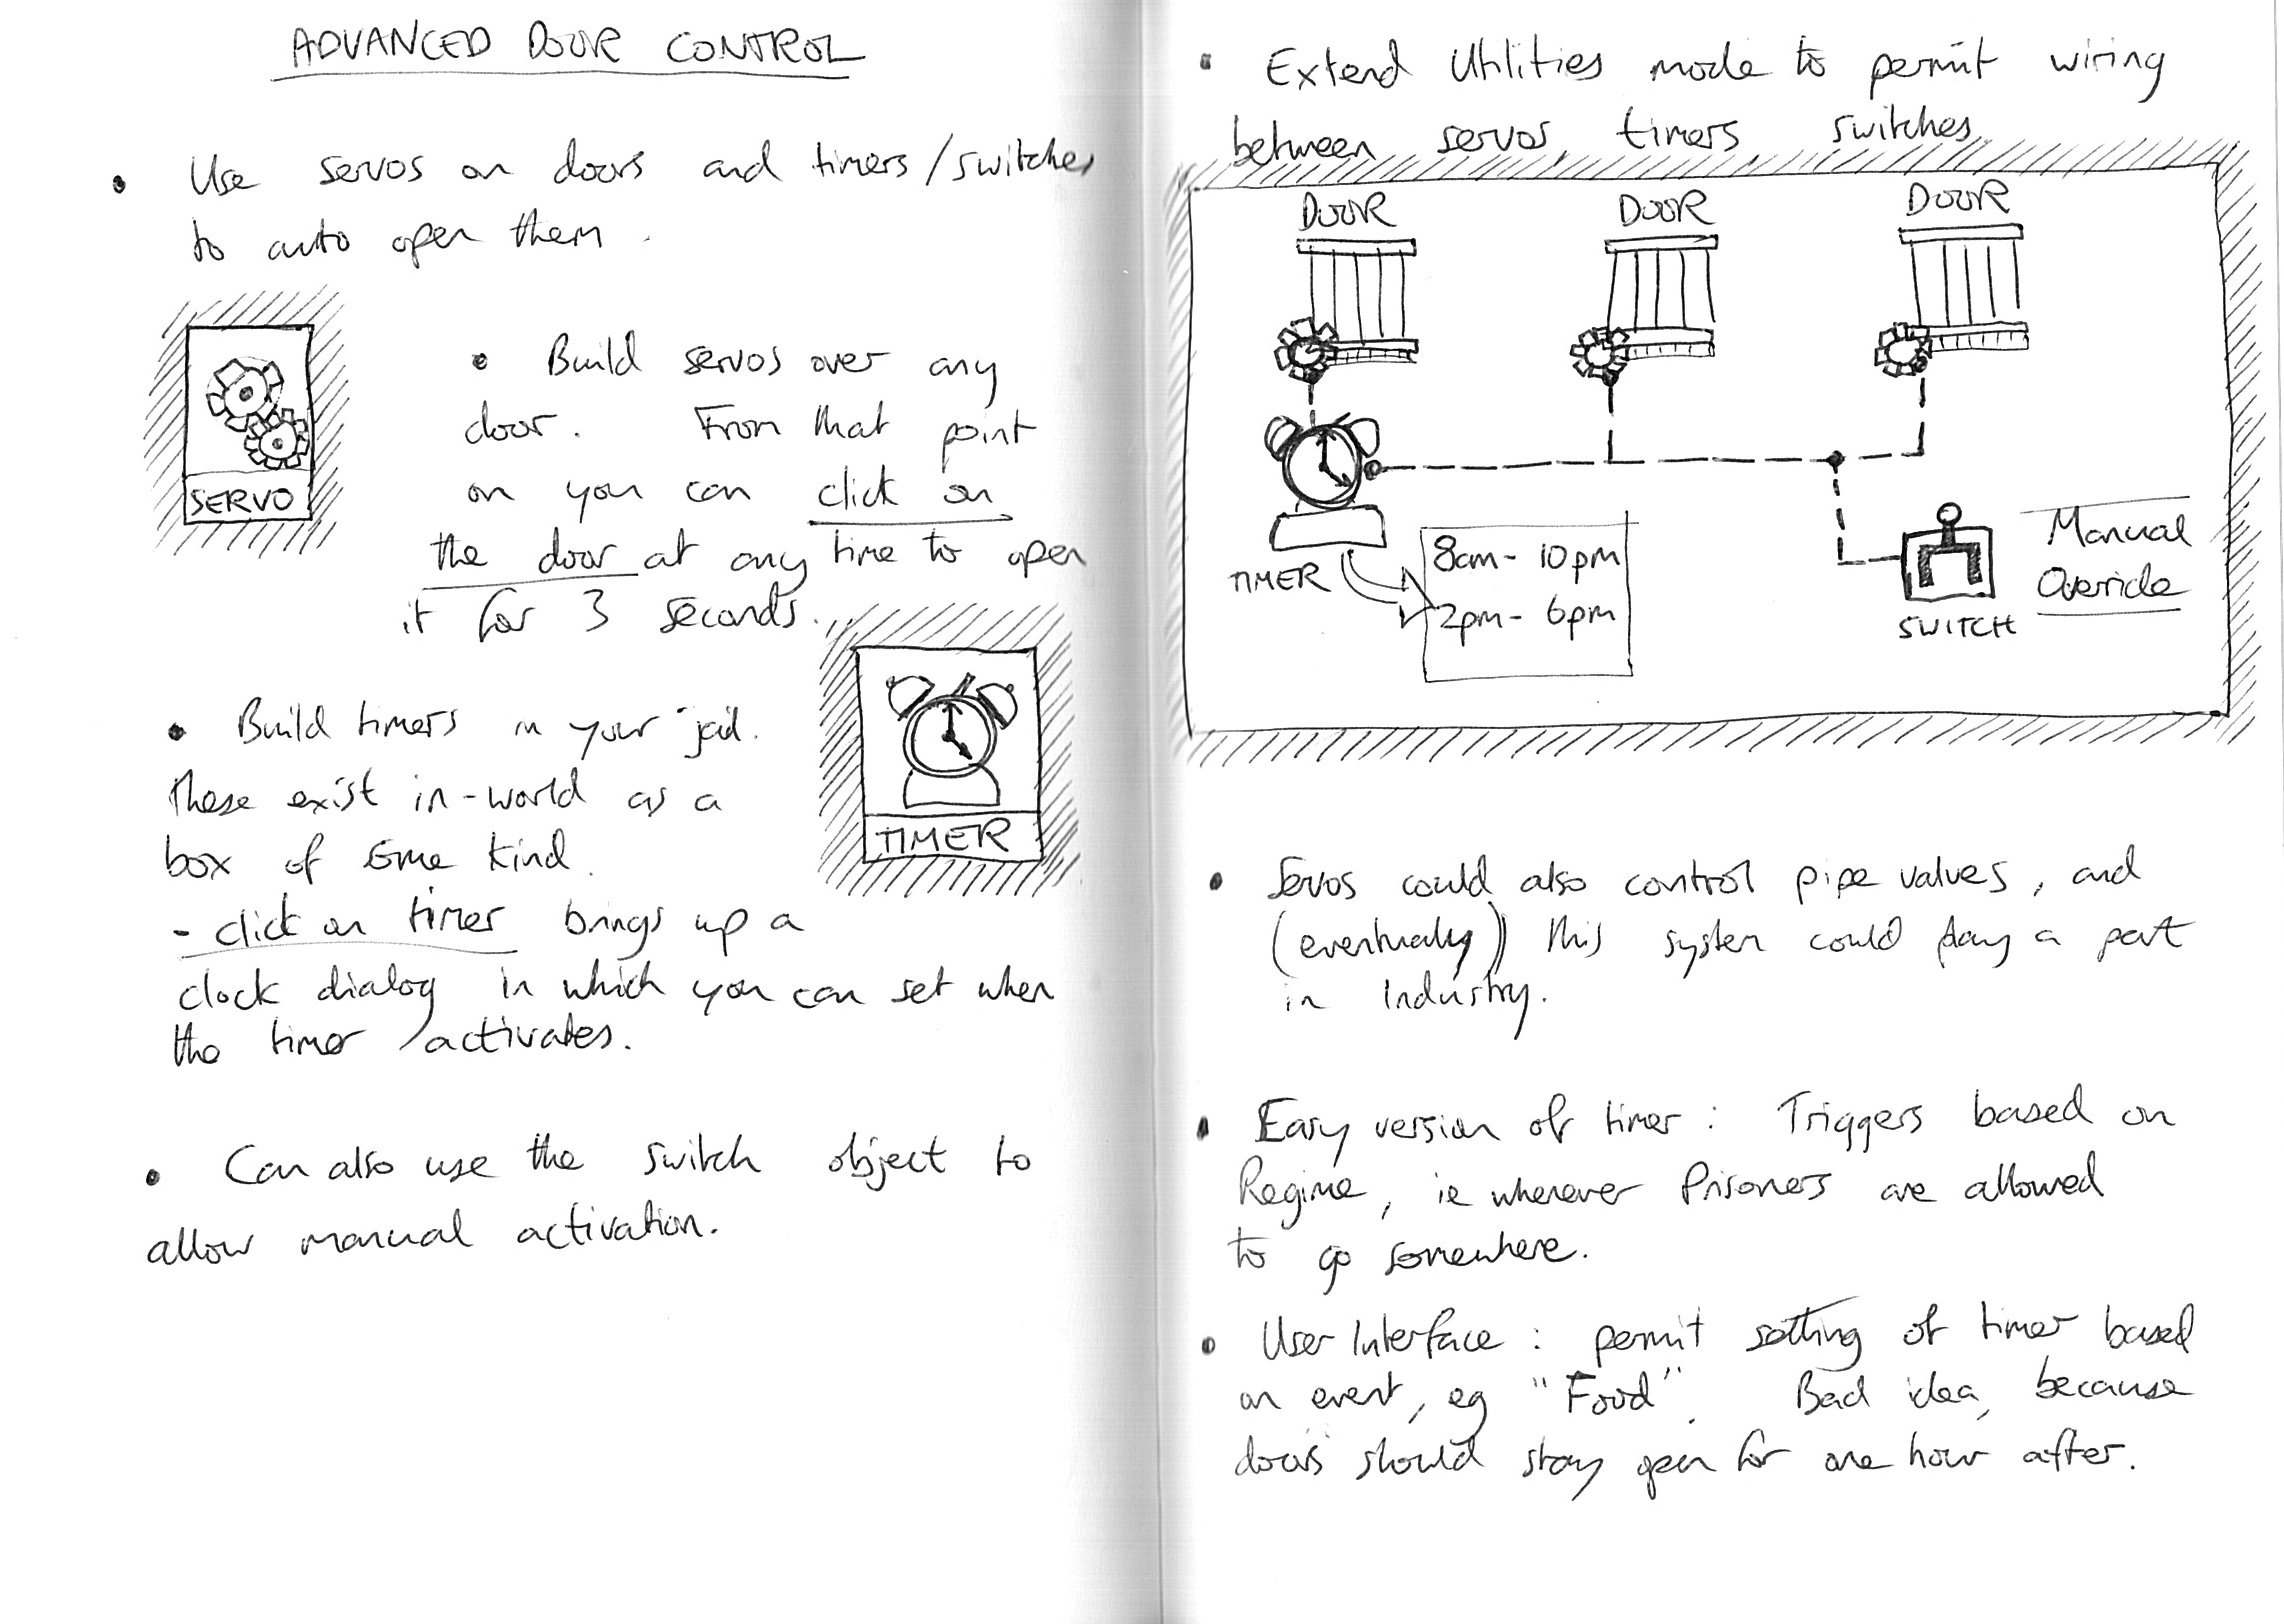 ADVANCED DOOR CONTROL
• Use servos on doors and timers/switches
to auto open them.
SERVO
• Build servos over any
door. From that point
on you can click on
the door at any time to open
it for 3 seconds.
• Build timers in your jail.
These exist in-world as a
box of some kind.
- click on timer brings up a
clock dialog in which you can set when
the timer activates.
TIMER
• Can also use the switch object to
allow manual activation.
• Extend Utilities mode to permit wiring
between servos, timers, switches.
DOOR DOOR DOOR
TIMER
8am - 10pm
2pm - 6pm
SWITCH
Manual
Override
• Servos could also control pipe valves, and
(eventually) this system could play a part
in Industry.
• Easy version of timer: Triggers based on
Regime, ie wherever Prisoners are allowed
to go somewhere.
• User Interface: permit setting of timer based
on event, eg "Food". Bad idea, because
doors should stay open for one hour after.